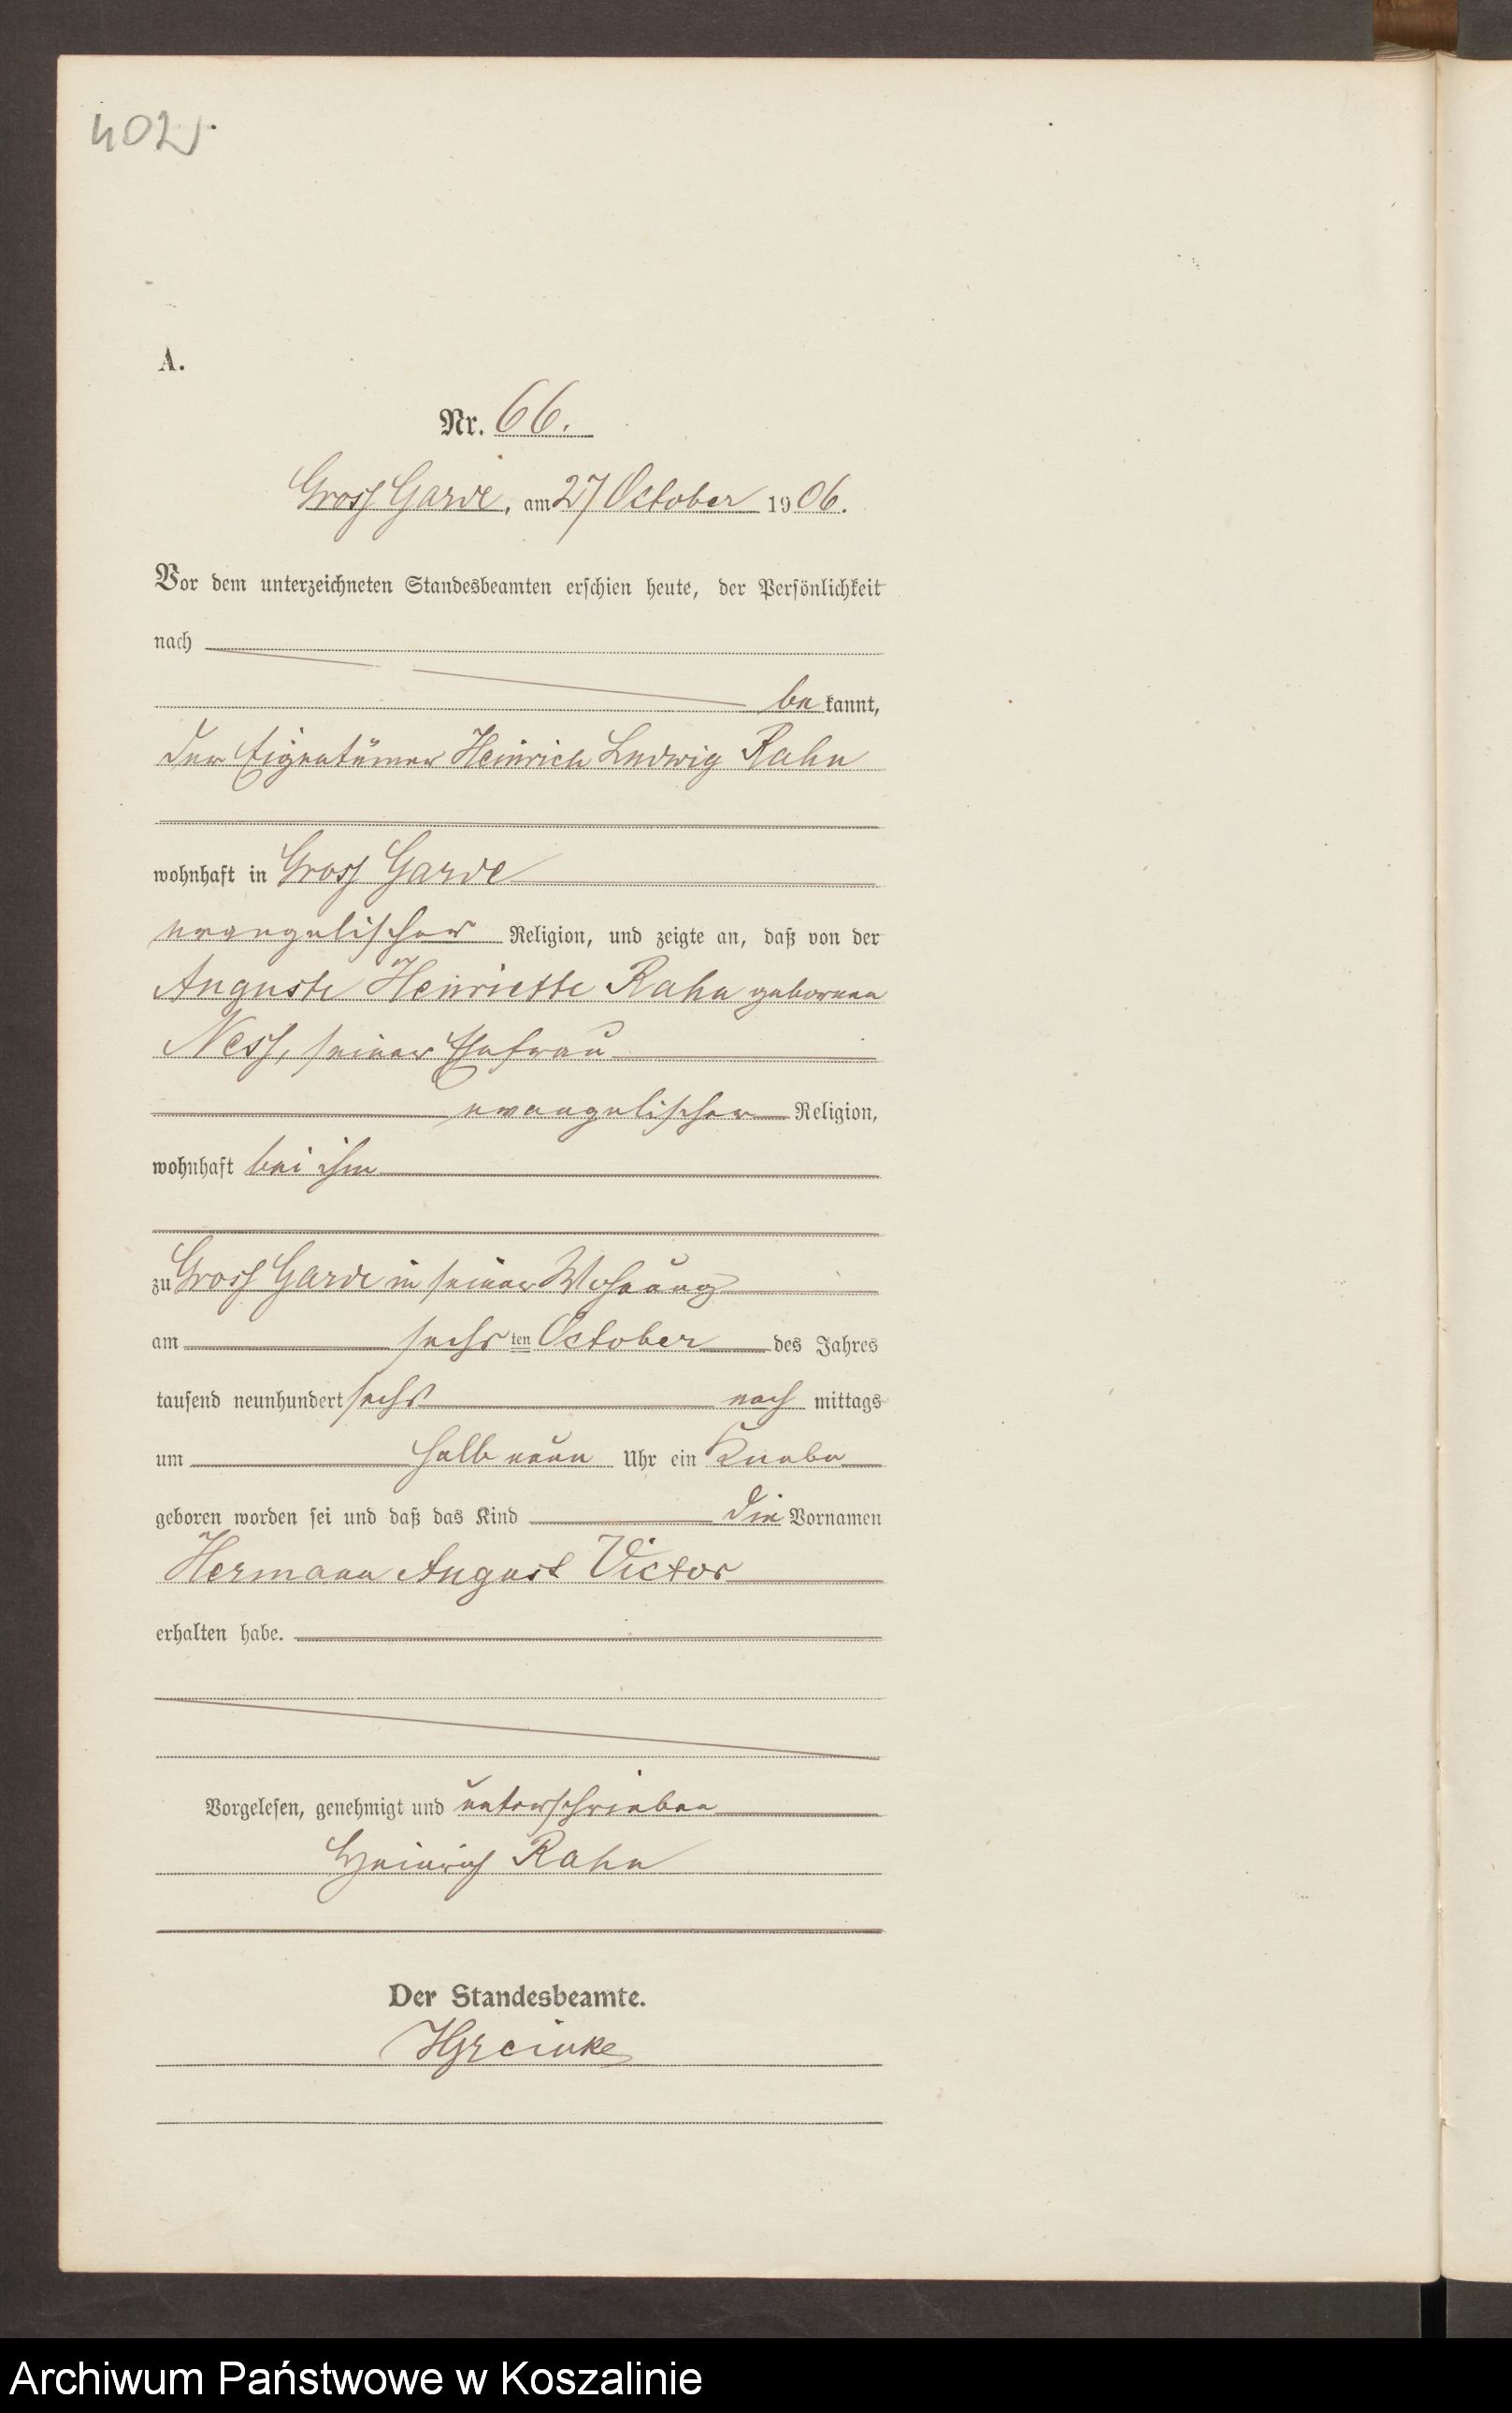 402
A.
Nr. 66.
Gross Garde, am 27 October 1906.
Vor dem unterzeichneten Standesbeamten erschien heute, der Persönlichkeit
nach
be kannt,
der Eigentümer Heinrich Ludwig Rahn
wohnhaft in Gross Garde
evangelischer Religion, und zeigte an, daß von der
Auguste Henriette Rahn geborenen
Ness, seiner Ehefrau
evangelischer Religion,
wohnhaft bei ihm
zu Gross Garde in seiner Wohnung
am sechsten October des Jahres
tausend neunhundert sechs nach mittags
um halb neun Uhr ein Knabe
geboren worden sei und daß das Kind die Vornamen
Hermann August Victor
erhalten habe.
Vorgelesen, genehmigt und unterschrieben
Heinrich Rahn
Der Standesbeamte.
Archiwum Państwowe w Koszalinie